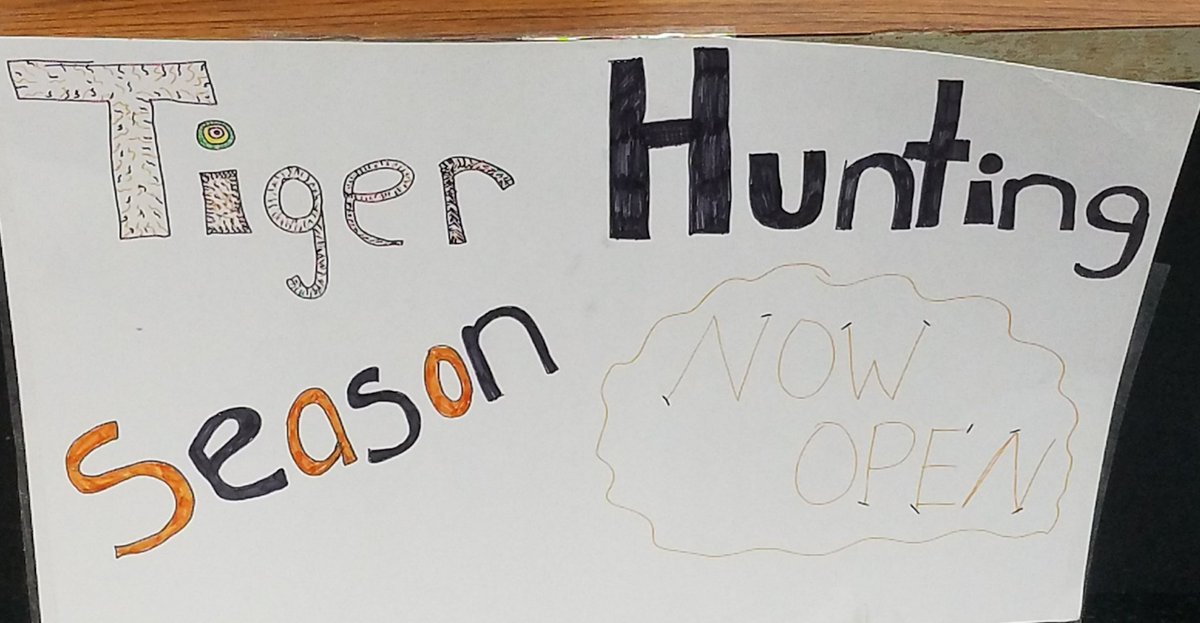 Tiger Hunting
Season
NOW
OPEN